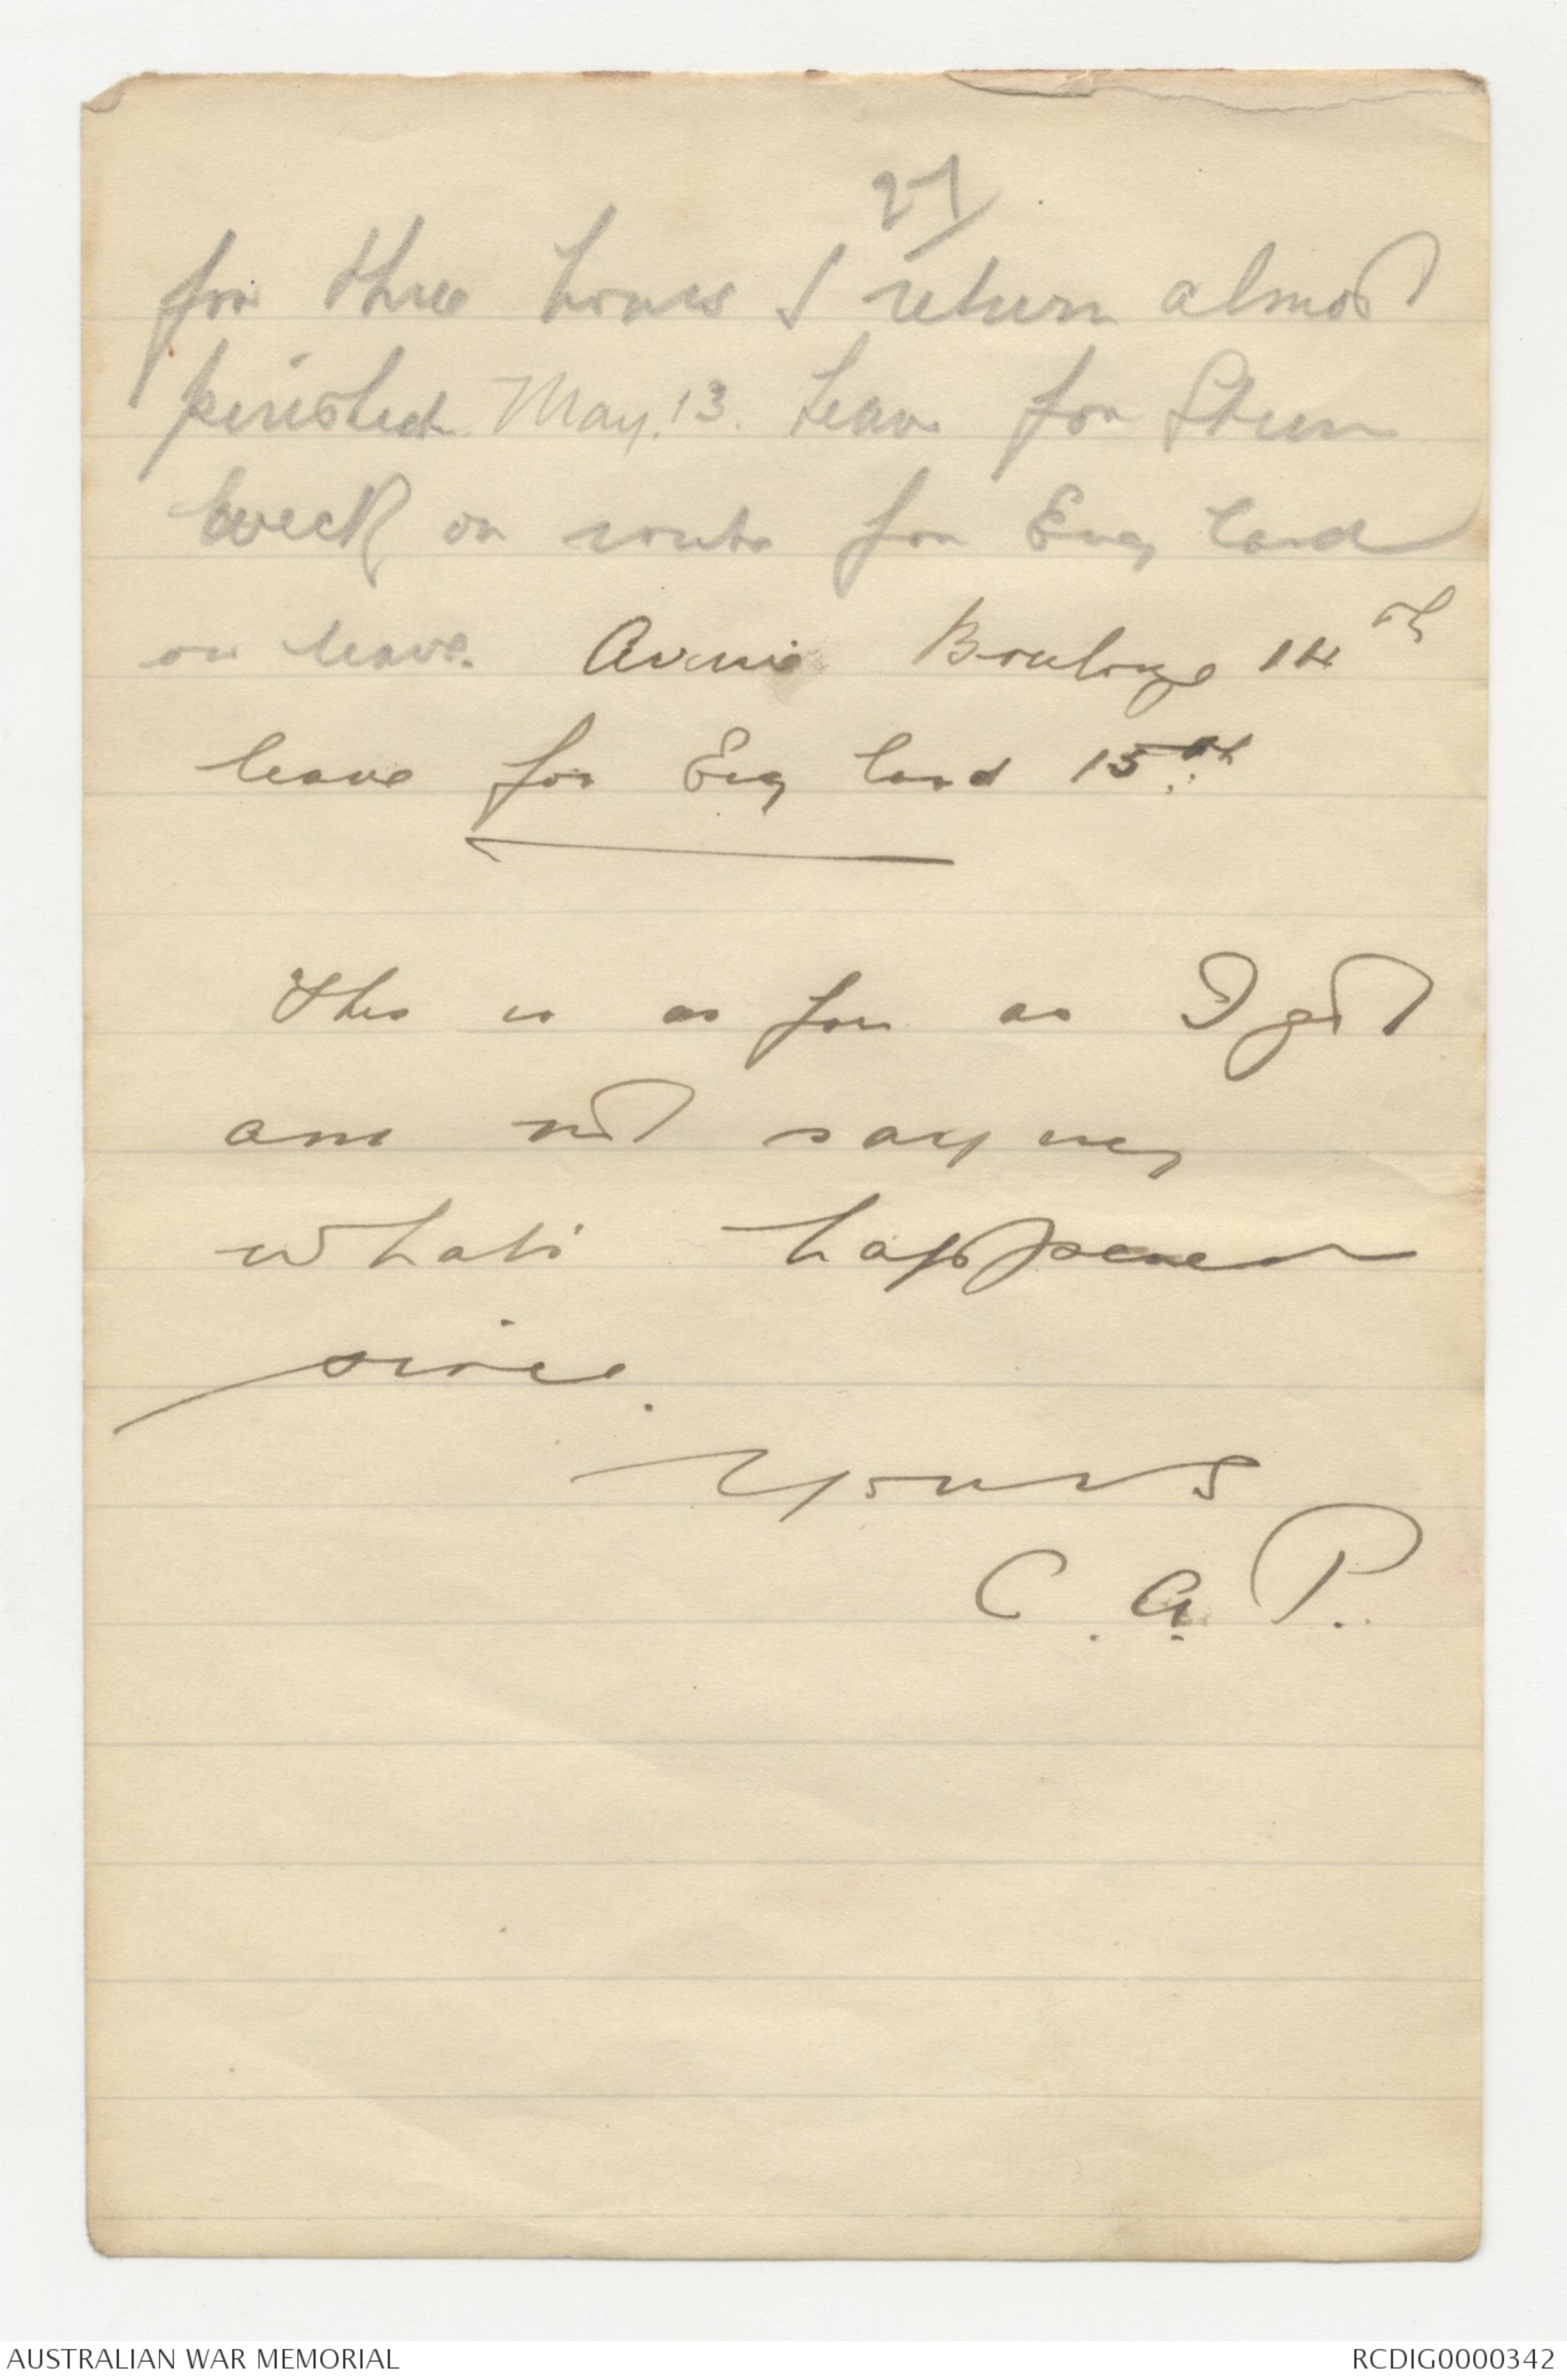 27/
for three hours I return almost
perished May.13. Leave for Steen
beeck on route for England
on leave. Arrive Boulogne 14th
leave for England 15th
This is as far as I got
am not saying
whats happened
since.
Yours
C. A. P.
AUSTRALIAN WAR MEMORIAL
RCDIG0000342